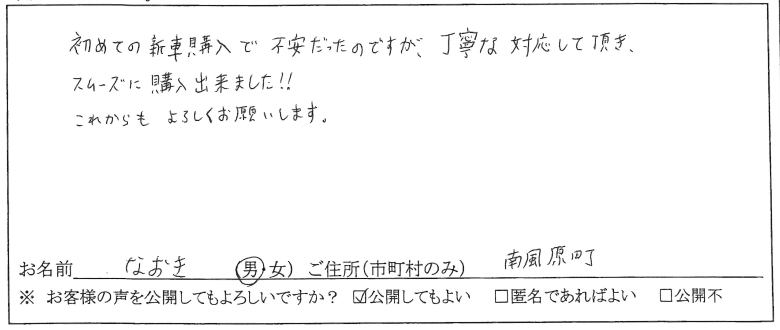 初めての新車購入で不安だったのですが、丁寧な対応して頂き、
スムーズに購入出来ました!!
これからもよろしくお願いします。
お名前 なおき (男・女) ご住所(市町村のみ) 南風原町
※ お客様の声を公開してもよろしいですか? ☑公開してもよい □匿名であればよい □公開不